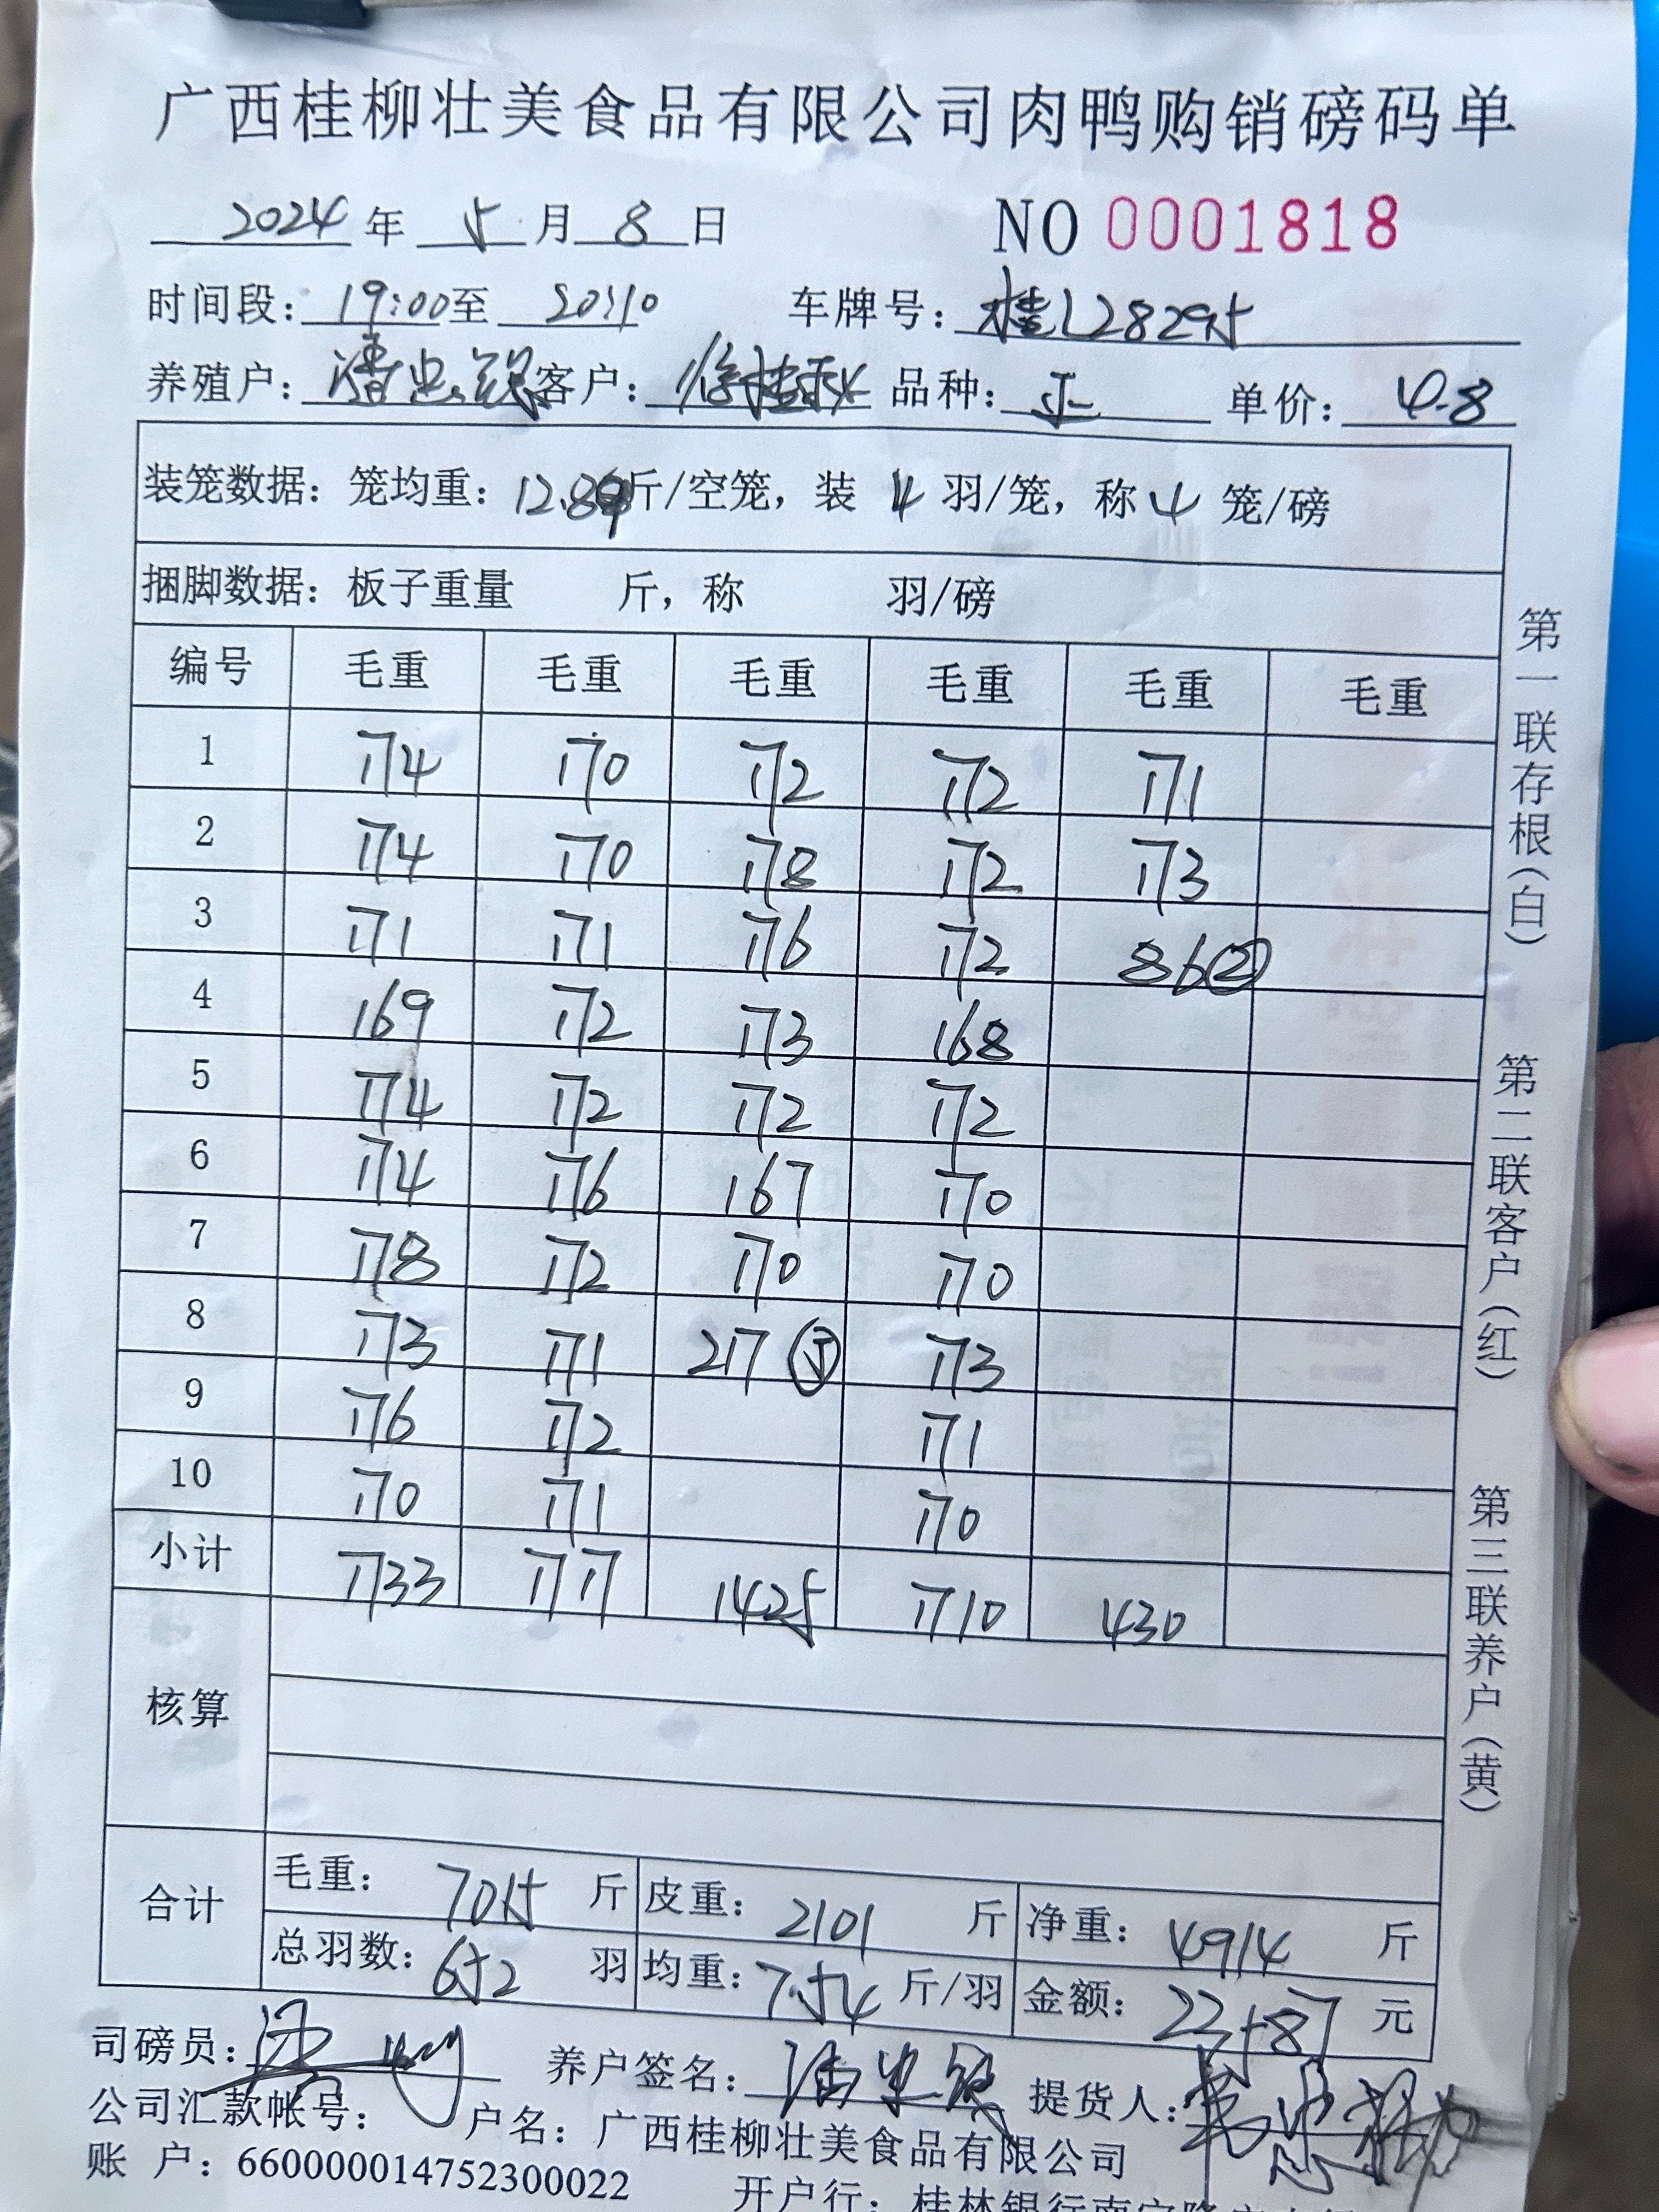 广西桂柳壮美食品有限公司肉鸭购销磅码单
2024 年 5 月 8 日 NO 0001818
时间段: 19:00 至 20:10 车牌号: 桂L28295
养殖户: 潘忠 客户: 徐桂秋 品种: 单价: 4.8
装笼数据: 笼均重: 斤/空笼, 装 4 羽/笼, 称 4 笼/磅
捆脚数据: 板子重量 斤, 称 羽/磅
编号 毛重 毛重 毛重 毛重 毛重 毛重
1 174 170 172 172 171
2 174 170 178 172 173
3 171 171 176 172 86②
4 169 172 173 168
5 174 172 172 172
6 174 176 167 170
7 178 172 170 170
8 173 171 217⑤ 173
9 176 172 171
10 170 171 170
小计 1733 1717 1425 1710 430
核算
合计 毛重: 7015 斤 皮重: 2101 斤 净重: 4914 斤
总羽数: 652 羽 均重: 7.54 斤/羽 金额: 23587 元
司磅员: 养户签名: 提货人:
公司汇款帐号: 户名: 广西桂柳壮美食品有限公司
账 户: 660000014752300022 开户行: 桂林银行南宁隆安
第一联存根(白) 第二联客户(红) 第三联养户(黄)